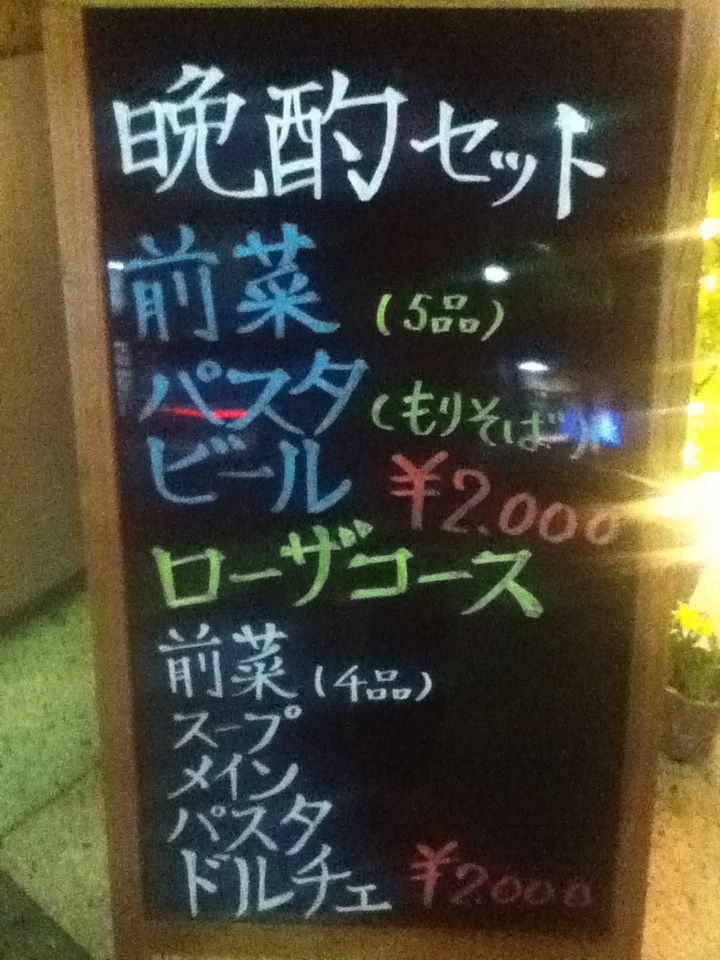 晩酌セット
前菜(5品)
パスタ(もりそば)
ビール ¥2.000
ローザコース
前菜(4品)
スープ
メイン
パスタ
ドルチェ ¥2.000